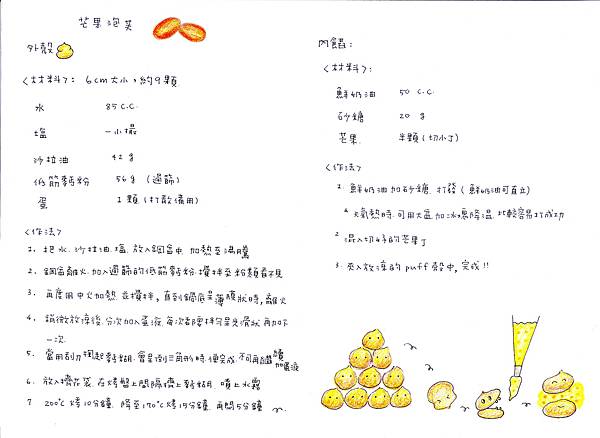 芒果泡芙
外殼
<材料>: 6cm大小,約9顆
水 85 c.c.
塩 一小撮
沙拉油 42 g
低筋麵粉 56g (過篩)
蛋 1顆 (打散備用)
<作法>
1. 把水.沙拉油.塩.放入鋼盆中.加熱至沸騰
2. 鋼盆離火.加入過篩的低筋麵粉.攪拌至粉類看不見
3. 再度用中火加熱.並攪拌,直到鍋底呈薄膜狀時,離火
4. 稍微放涼後.分次加入蛋液.每次都要拌勻呈光滑狀再加下
一次.
5. 當用刮刀 麵糊.會呈倒三角形時.便完成.不可再 加蛋液
6. 放入擠花袋.在烤盤上間隔擠上麵糊 噴上水霧
7 200℃烤10分鐘.降至170℃烤15分鐘.再悶5分鐘
內餡:
<材料>:
鮮奶油 50 c.c.
砂糖 20 g
芒果. 半顆(切小丁)
<作法>
1. 鮮奶油加砂糖.打發(鮮奶油可直立)
天氣熱時.可用大盆加冰塊降溫.比較容易打成功
2 混入切好的芒果丁
3. 夾入放涼的puff殼中,完成!!